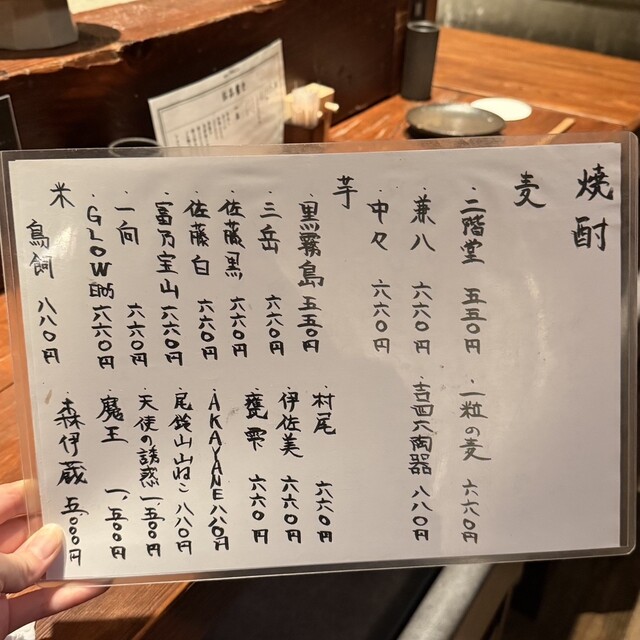 焼酎
麦
・二階堂 五五〇円
・一粒の麦 六六〇円
・兼八 六六〇円
・吉四六陶器 八八〇円
・中々 六六〇円
芋
・黒霧島 五五〇円
・村尾 六六〇円
・三岳 六六〇円
・伊佐美 六六〇円
・佐藤黒 六六〇円
・甕雫 六六〇円
・佐藤白 六六〇円
・AKAYANE 八八〇円
・富乃宝山 六六〇円
・尾鈴山山ねこ 八八〇円
・一向 六六〇円
・天使の誘惑 一、五〇〇円
・GLOW EP05 六六〇円
・魔王 一、五〇〇円
米
・鳥飼 八八〇円
・森伊蔵 五、〇〇〇円